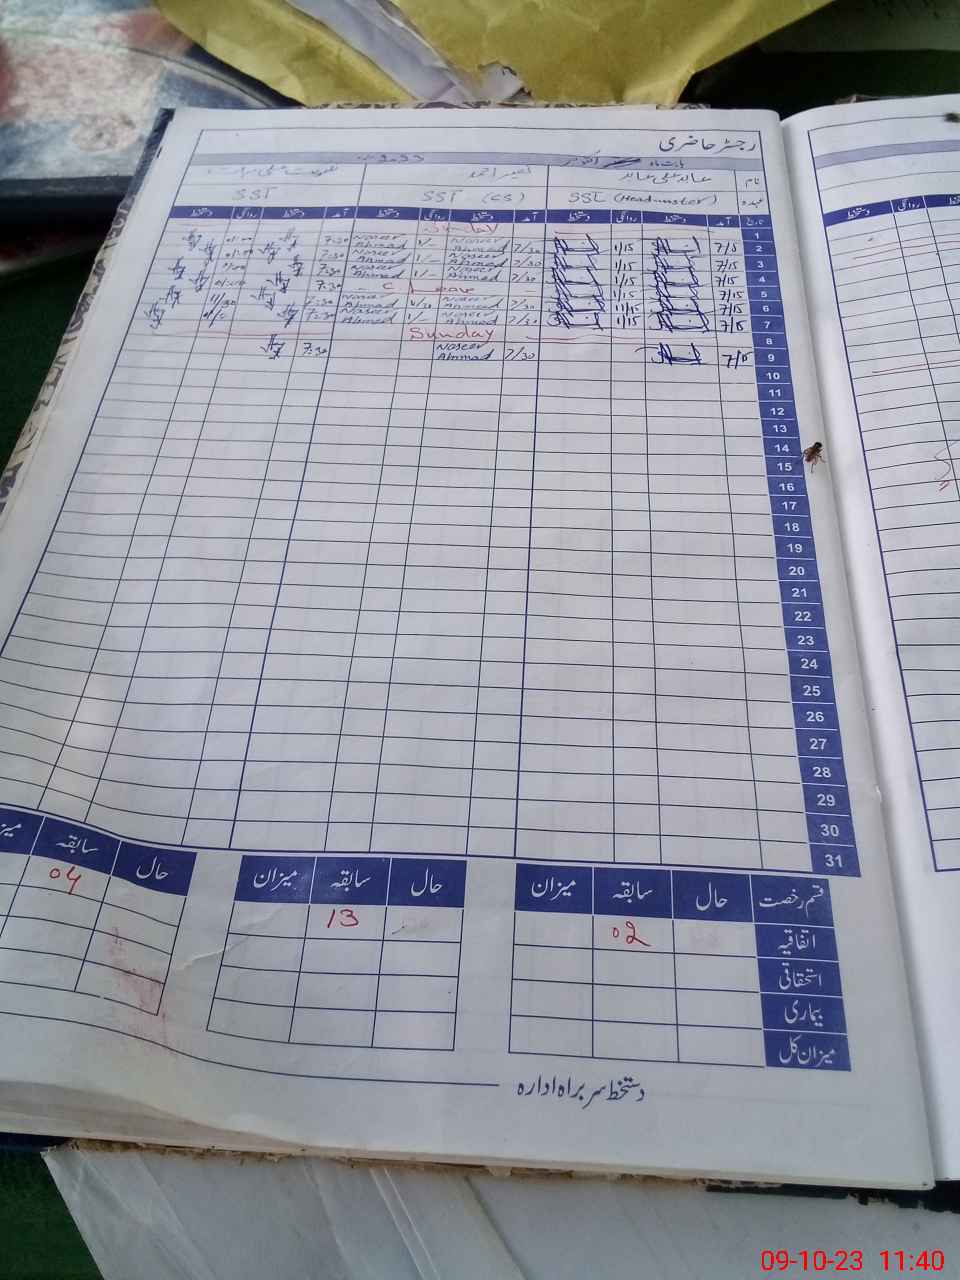 رجسٹر حاضری
بابت ماہ اکتوبر 2023
نام عابد علی عابد نصیر احمد
عہدہ SST (Headmaster) SST (CS) SST
تاریخ آمد دستخط روانگی دستخط آمد دستخط روانگی دستخط آمد دستخط روانگی دستخط
1 Sunday
2 7/15 1/15 7/30 Naseer Ahmad 1/- Naseer Ahmad 7:30
3 7/15 1/15 7/30 Naseer Ahmad 1/- Naseer Ahmad 7:30
4 7/15 1/15 7/30 Naseer Ahmad 1/- Naseer Ahmad 7:30
5 7/15 1/15 C Leave 7:30
6 7/15 1/15 7/30 Naseer Ahmad Naseer Ahmad 7:30
7 7/15 1/15 7/30 Naseer Ahmad 1/- Naseer Ahmad 7:30
8 Sunday
9 7/15 7/30 Naseer Ahmad 7:30
10
11
12
13
14
15
16
17
18
19
20
21
22
23
24
25
26
27
28
29
30
31
قسم رخصت حال سابقہ میزان حال سابقہ میزان حال سابقہ
اتفاقیہ 02 13 04
استحقاقی
بیماری
میزان کل
دستخط سربراہ ادارہ
دستخط روانگی
09-10-23 11:40